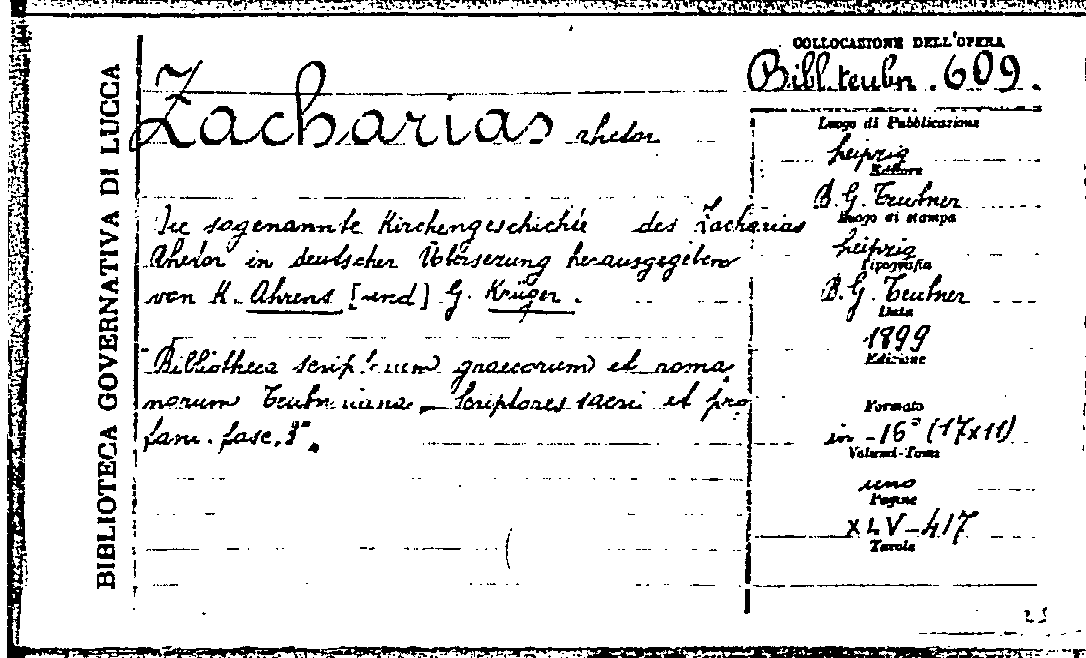 BIBLIOTECA GOVERNATIVA DI LUCCA
COLLOCASIONE DELL'OPERA
Bibl. teubn. 609.
Zacharias rhetor
Die sogenannte Kirchengeschichte des Zacharias
Rhetor in deutscher Überserung herausgegeben
von K. Ahrens [und] G. Krüger.
Bibliotheca scriptorum graecorum et roma
norum Teubneriana - Scriptores sacri et pro
fani. fasc. 3°.
Luogo di Pubblicazione
Leipzig
Editore
B. G. Teubner
Luogo di stampa
Leipzig
Tipografia
B. G. Teubner
Data
1899
Edizione
Formato
in - 16° (17x11)
Volumi-Tomo
uno
Pagine
XLV-417
Tavole